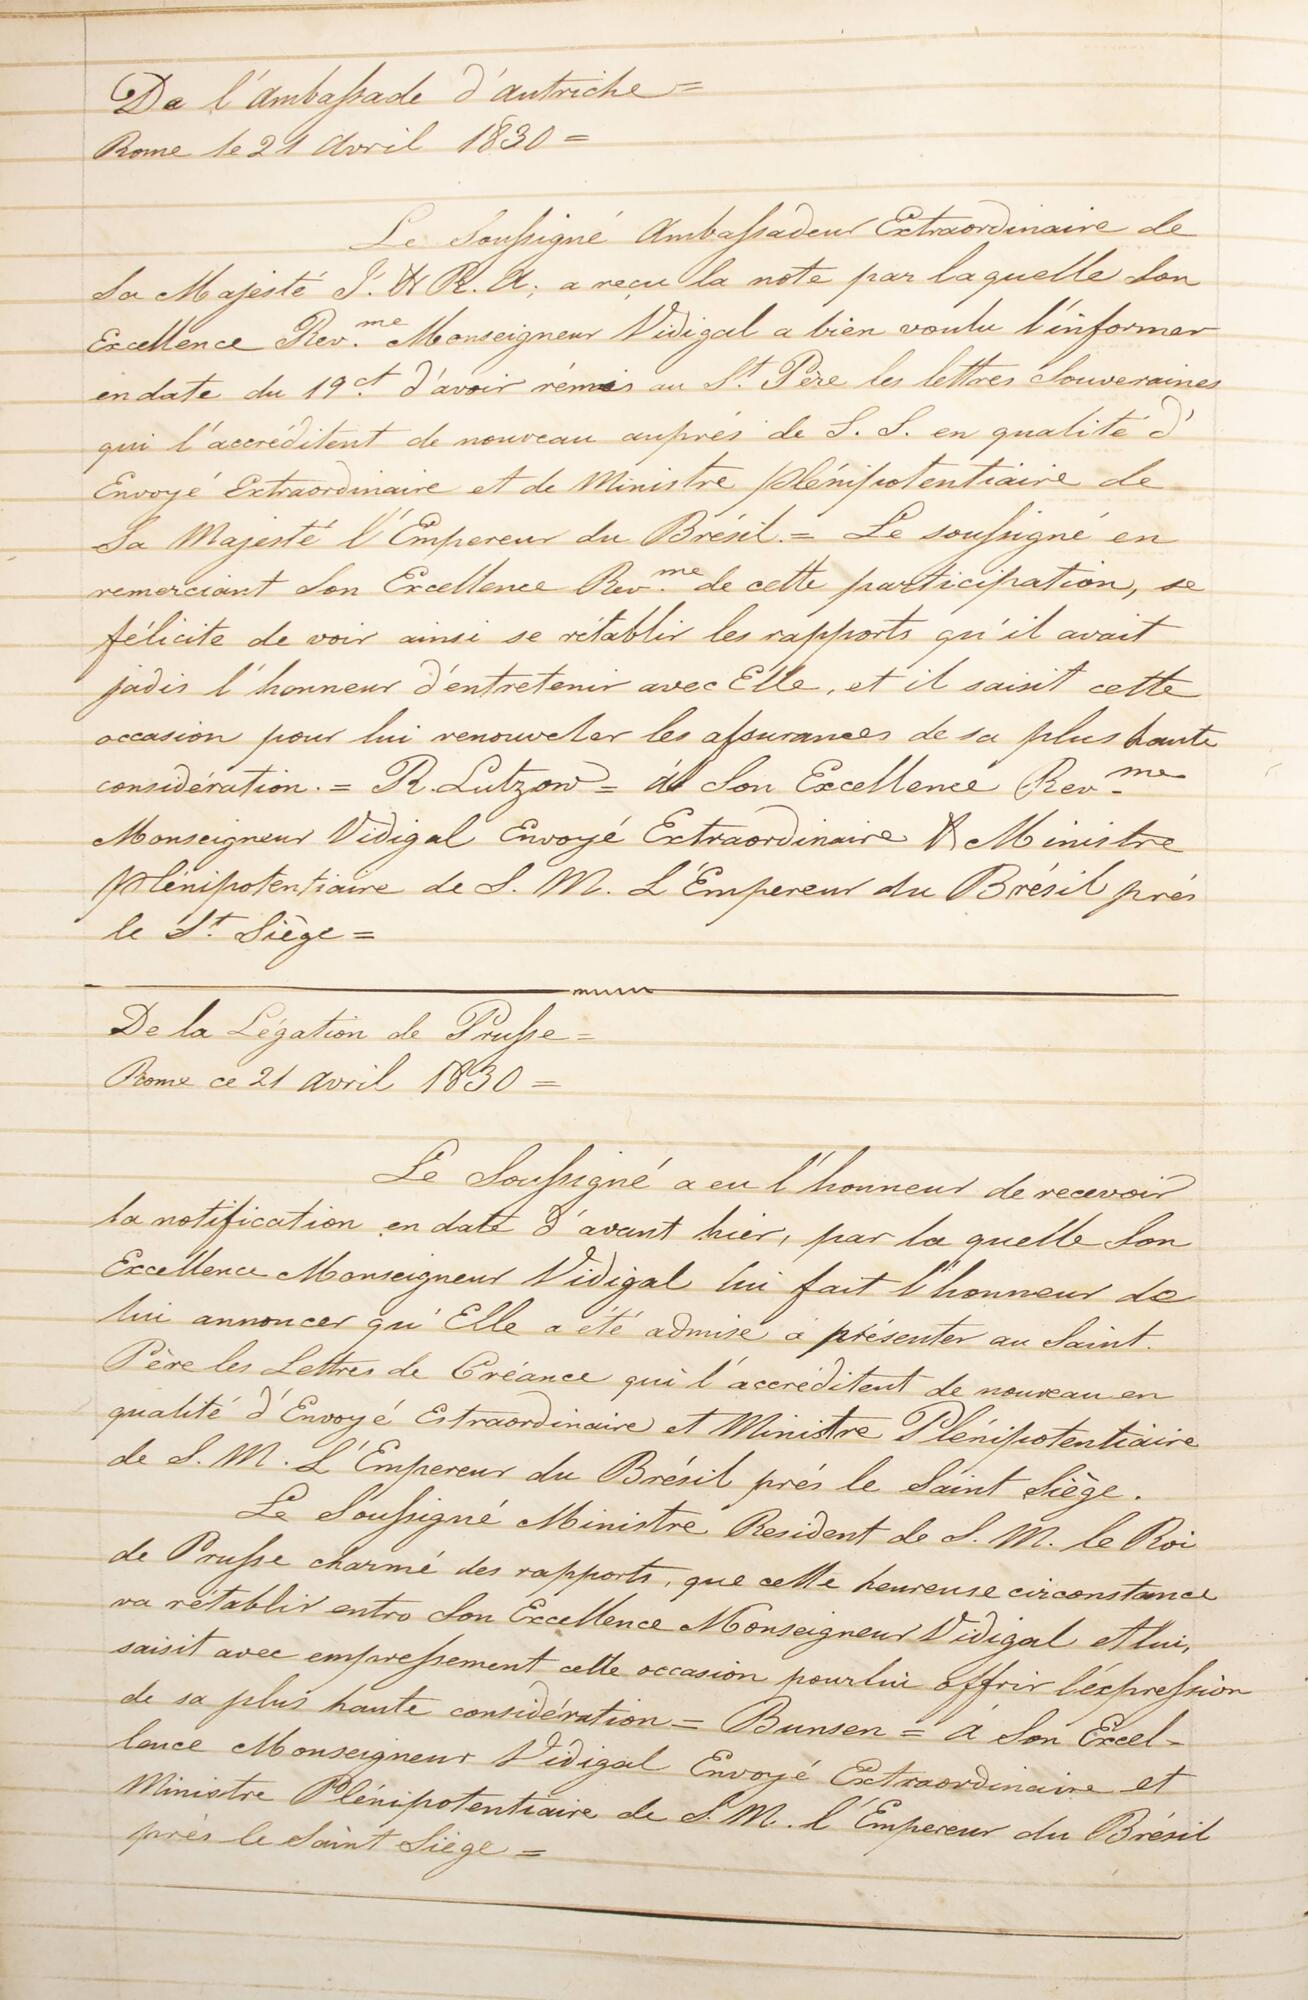 De l'Ambassade d'autriche =
Rome le 21 Avril 1830 =
Le Soussigné Ambassadeur Extraordinaire de
Sa Majesté I. & R. A; a reçu la note par laquelle Son
Excellence Rev.me Monseigneur Vidigal a bien voulu l'informer
en date du 19 ct. d'avoir rémis au St. Père les lettres Souveraines
qui l'accréditent de nouveau auprés de S. S. en qualité d'
Envoyé Extraordinaire et de Ministre plénipotentiaire de
Sa Majesté l'Empereur du Brésil. = Le soussigné en
remerciant Son Excellence Rev.me de cette participation, se
félicite de voir ainsi se rétablir les rapports qu'il avait
jadis l'honneur d'entretenir avec Elle, et il saisit cette
occasion pour lui renouveler les assurances de sa plus haute
considération. = R. Lutzow = à Son Excellence Rev.me
Monseigneur Vidigal Envoyé Extraordinaire & Ministre
plénipotentiaire de S. M. L'Empereur du Brésil prés
le St. Siège =
De la Légation de Prusse =
Rome ce 21 avril 1830 =
Le Soussigné a eu l'honneur de recevoir
la notification en date d'avant hier, par la quelle Son
Excellence Monseigneur Vidigal lui fait l'honneur de
lui annoncer qu'Elle a été admise à présenter au Saint
Père les Lettres de Créance qui l'accréditent de nouveau en
qualité d'Envoyé Estraordinaire et Ministre Plénipotentiaire
de S. M. L'Empereur du Brésil prés le Saint Siège.
Le Soussigné Ministre Resident de S. M. le Roi
de Prusse charmé des rapports, que cette heureuse circonstance
va rétablir entro Son Excellence Monseigneur Vidigal et lui,
saisit avec empressement cette occasion pour lui offrir l'éxpression
de sa plus haute considération = Bunsen = à Son Excel-
lence Monseigneur Vidigal Envoyé Extraordinaire et
Ministre Plénipotentiaire de S. M. l'Empereur du Brésil
près le Saint Siège =